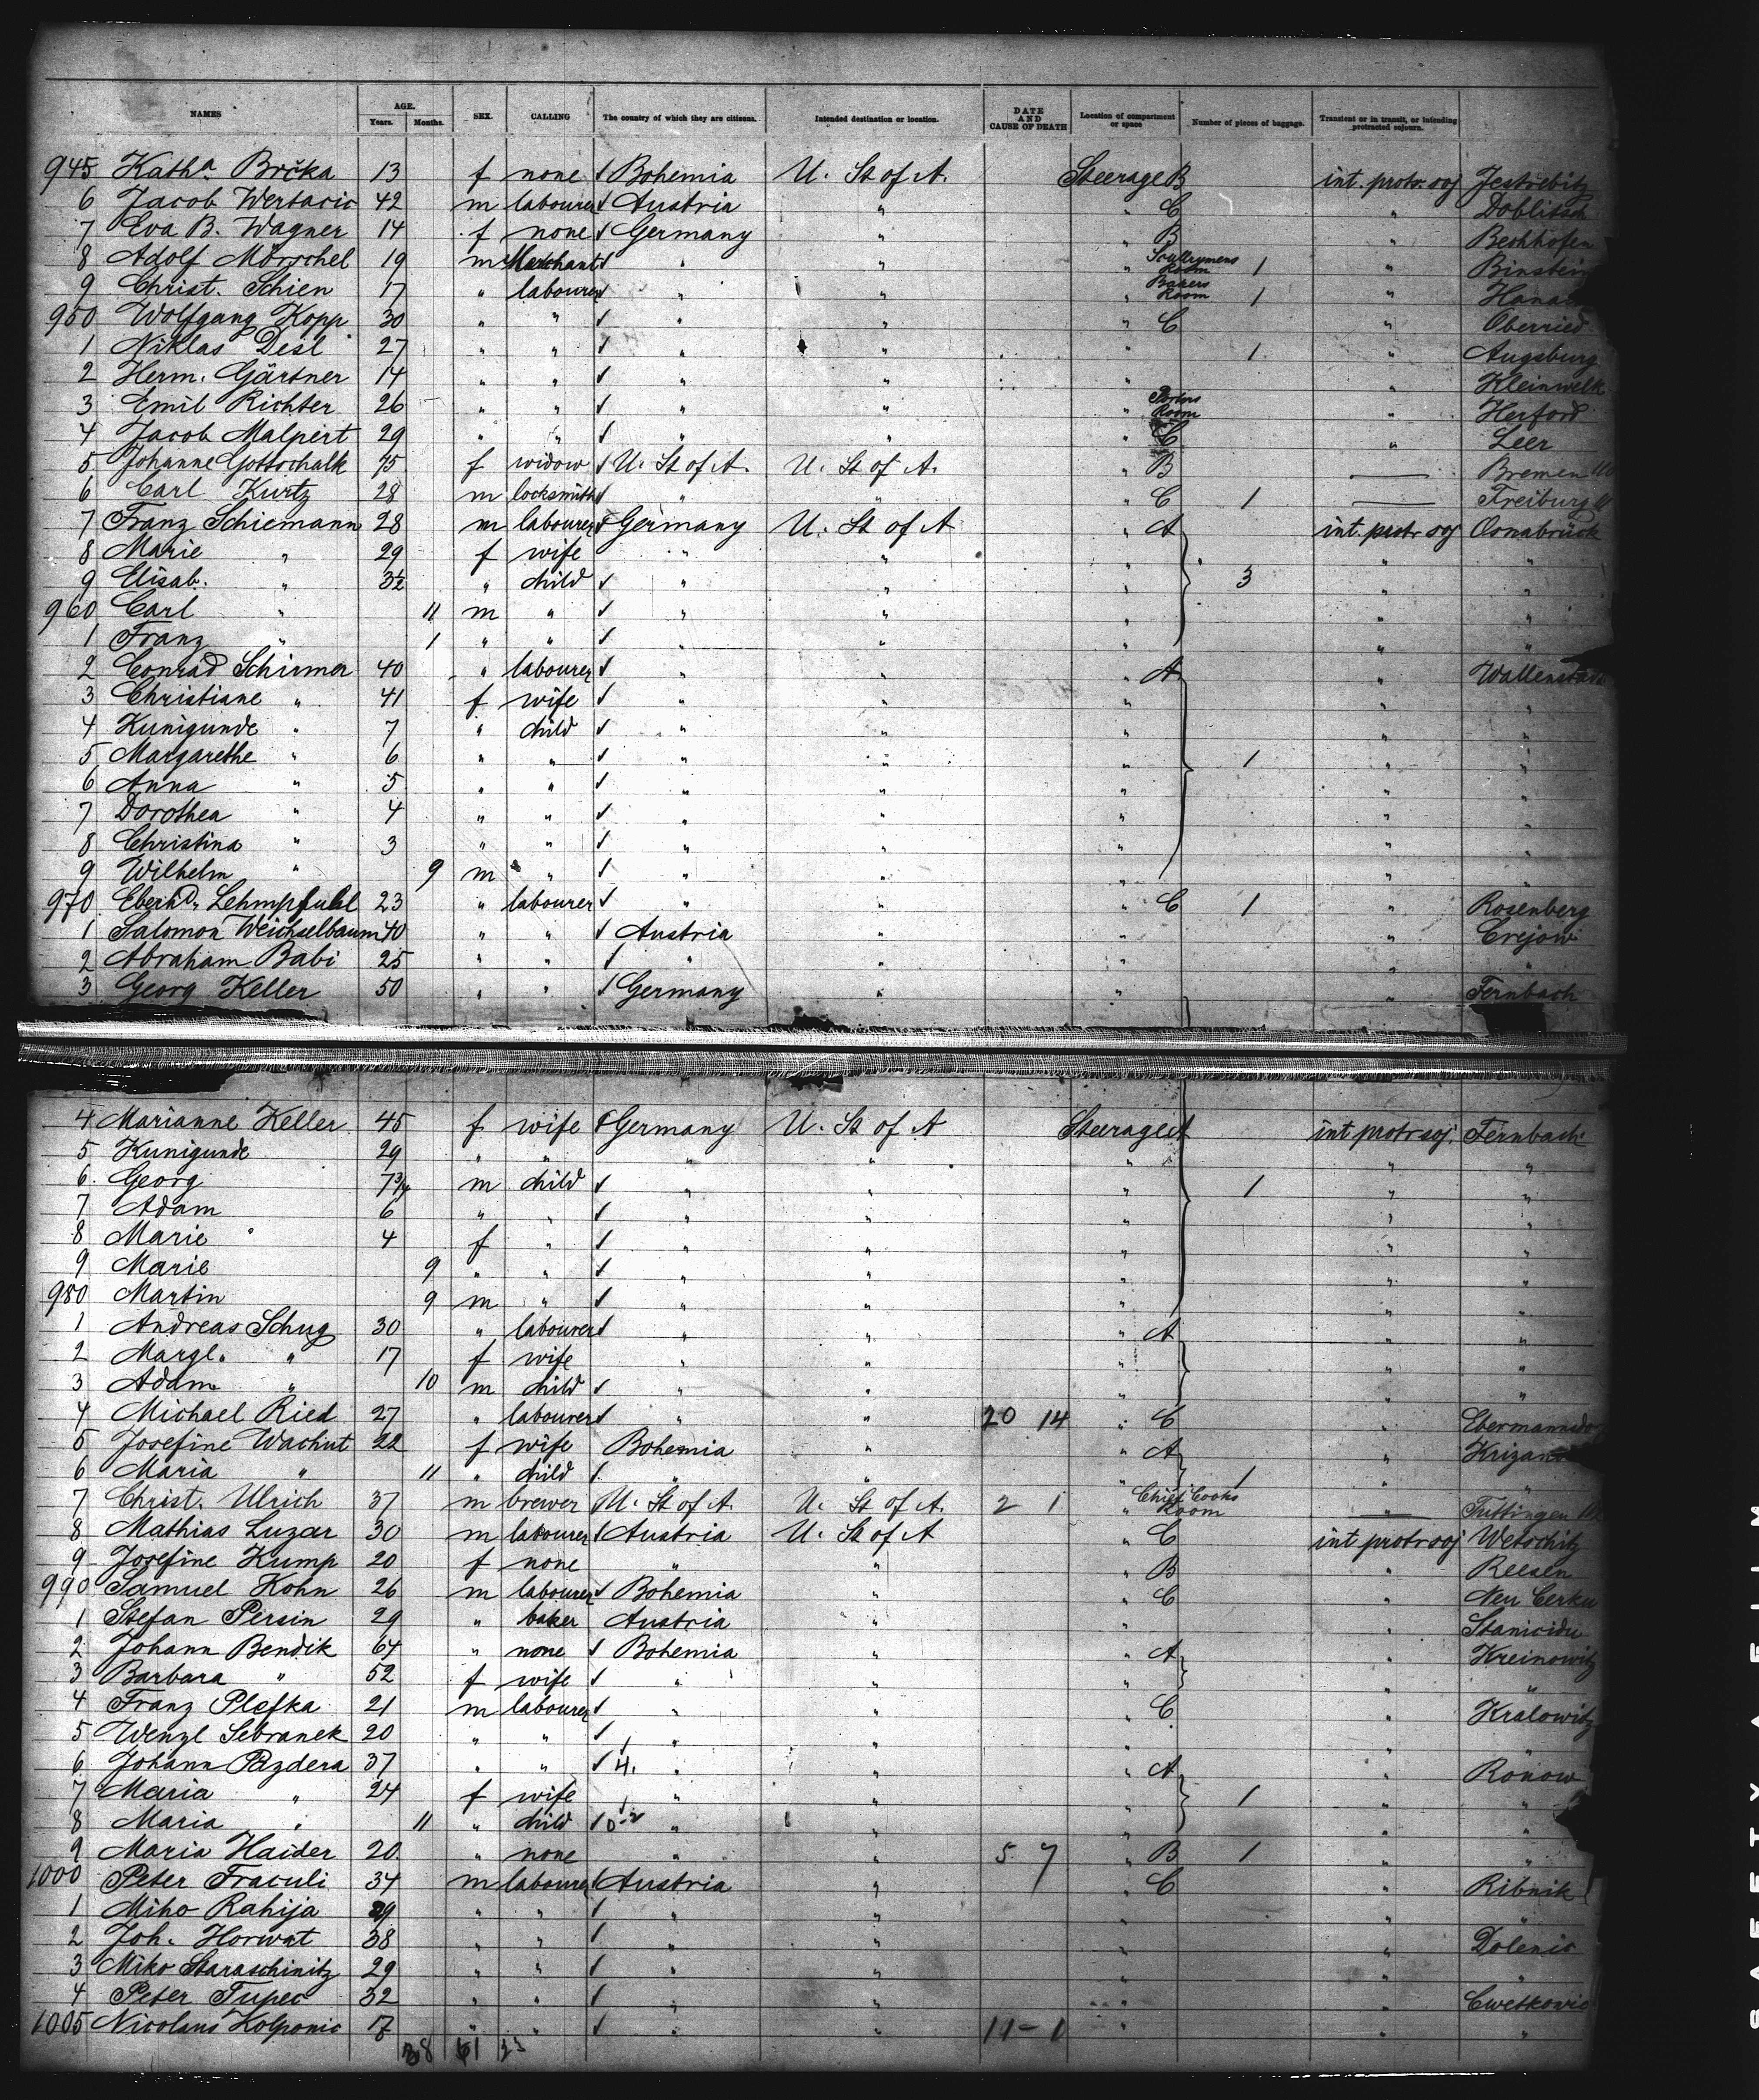 NAMES AGE. Years. Months. SEX. CALLING The country of which they are citizens. Intended destination or location. DATE AND CAUSE OF DEATH Location of compartment or space Number of pieces of baggage. Transient or in transit, or intending protracted sojourn.
945 Katha. Brčka 13 f none Bohemia U. St of A. Steerage B int. protr. soj Jestrebitz
6 Jacob Wertacic 42 m labourer Austria " " C " Doblitsch
7 Eva B. Wagner 14 f none Germany " " B " Bechhofen
8 Adolf Mörschel 19 m Merchant " " " Scullrymens Room 1 " Binstein
9 Christ. Schien 17 " labourer " " " Bakers Room 1 " Hanau
950 Wolfgang Kopp 30 " " " " " C " Oberried
1 Niklas Desl 27 " " " " " 1 " Augsburg
2 Herm. Gärtner 14 " " " " " " Kleinwelk
3 Emil Richter 26 " " " " " Porters Room " Herford
4 Jacob Malpert 29 " " " " " C " Leer
5 Johanne Gottschalk 75 f widow U. St of A. U. St of A. " B — Bremen
6 Carl Kurtz 28 m locksmith " " " C 1 — Freiburg
7 Franz Schiemann 28 m labourer Germany U. St of A " A int. protr soj Osnabrück
8 Marie " 29 f wife " " " " "
9 Elisab. " 3½ " child " " " 3 " "
960 Carl " 11 m " " " " " "
1 Franz " 1 " " " " " " "
2 Conrad Schirmer 40 " labourer " " " A " Wallenstadt
3 Christiane " 41 f wife " " " " "
4 Kunigunde " 7 " child " " " " "
5 Margarethe " 6 " " " " " 1 " "
6 Anna " 5 " " " " " " "
7 Dorothea " 4 " " " " " " "
8 Christina " 3 " " " " " " "
9 Wilhelm " 9 m " " " " " "
970 Eberhd. Lehmpfuhl 23 " labourer " " " C 1 " Rosenberg
1 Salomon Weichselbaum 40 " " Austria " " " Crejow
2 Abraham Babi 25 " " " " " " "
3 Georg Keller 50 " " Germany " " " Fernbach
4 Marianne Keller 45 f wife Germany U. St of A Steerage A int protr soj. Fernbach
5 Kunigunde 29 " " " " " " "
6. Georg 7¾ m child " " " 1 " "
7 Adam 6 " " " " " " "
8 Marie " 4 f " " " " " "
9 Marie 9 " " " " " " "
980 Martin 9 m " " " " " "
1 Andreas Schug 30 " labourer " " " A " "
2 Margl. " 17 f wife " " " " "
3 Adam " 10 m child " " " " "
4 Michael Ried 27 " labourer " " 20 14 " C " Ebermannsdo
5 Josefine Wachut 22 f wife Bohemia " " A " Krizan
6 Maria " 11 " child " " " 1 " "
7 Christ. Ulrich 37 m brewer U. St of A. U. St of A. 2 1 " Chief Cooks Room — Tuttingen
8 Mathias Luzar 30 m labourer Austria U. St of A " C int protr soj Wetschitz
9 Josefine Kump 20 f none " " " B " Reesen
990 Samuel Kohn 26 m labourer Bohemia " " C " Neu Cerku
1 Stefan Persin 29 " baker Austria " " " Stanicidu
2 Johann Bendik 64 " none Bohemia " " A " Kreinowitz
3 Barbara " 52 f wife " " " " "
4 Franz Plefka 21 m labourer " " " C " Kralowitz
5 Wenzl Sebranek 20 " " " " " " "
6 Johann Pazdera 37 " " 4. " " " A " Ronow
7 Maria " 24 f wife " " " 1 " "
8 Maria " 11 " child " " " " "
9 Maria Haider 20. " none " " 5 7 " B 1 " "
1000 Peter Fraculi 34 m labourer Austria " " C " Ribnik
1 Miho Rahija 29 " " " " " " "
2 Joh. Horwat 38 " " " " " " Dolenic
3 Miko Staraschinitz 29 " " " " " " "
4 Peter Tupec 32 " " " " " " Cwetkovic
1005 Nicolaus Kolponic 17 " " " " 11-1 " " "
38 51 23
SAFETY FILM